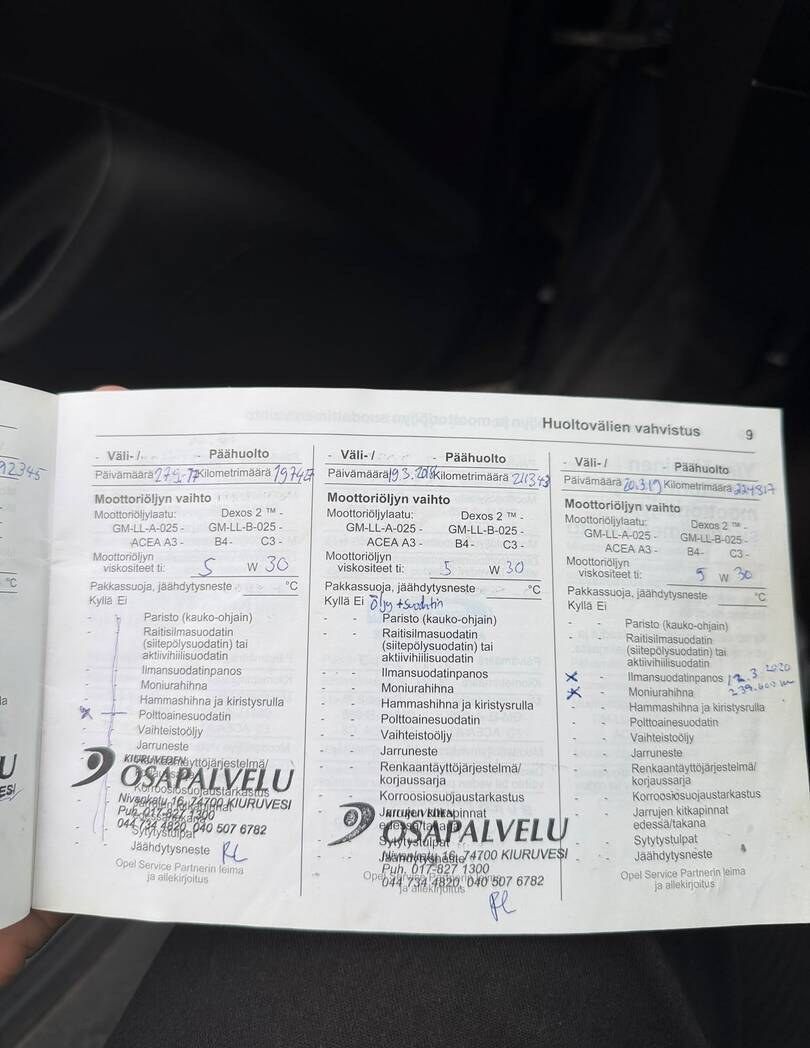 Huoltovälien vahvistus 9
92345
°C
- Väli- /- - Päähuolto
Päivämäärä Kilometrimäärä
Moottoriöljyn vaihto
Moottoriöljylaatu: Dexos 2 ™ -
GM-LL-A-025 - GM-LL-B-025 -
ACEA A3 - B4- C3 -
Moottoriöljyn
viskositeet ti: 5 W 30
Pakkassuoja, jäähdytysneste °C
Kyllä Ei
- Paristo (kauko-ohjain)
- Raitisilmasuodatin
(siitepölysuodatin) tai
aktiivihiilisuodatin
- Ilmansuodatinpanos
- Moniurahihna
- Hammashihna ja kiristysrulla
x Polttoainesuodatin
- Vaihteistoöljy
- Jarruneste
KIURUVEDEN
OSAPALVELU
Nivankatu 16, 74700 KIURUVESI
Puh. 017-827 1300
044 734 4820, 040 507 6782
Sytytystulpat
Jäähdytysneste RL
Opel Service Partnerin leima
ja allekirjoitus
- Väli- / - Päähuolto
Päivämäärä 19.3.2018 Kilometrimäärä 211343
Moottoriöljyn vaihto
Moottoriöljylaatu: Dexos 2 ™ -
GM-LL-A-025 - GM-LL-B-025 -
ACEA A3 - B4- C3 -
Moottoriöljyn
viskositeet ti: 5 W 30
Pakkassuoja, jäähdytysneste °C
Kyllä Ei Öljy + suodatin
- - Paristo (kauko-ohjain)
- - Raitisilmasuodatin
(siitepölysuodatin) tai
aktiivihiilisuodatin
- - Ilmansuodatinpanos
- - Moniurahihna
- - Hammashihna ja kiristysrulla
- - Polttoainesuodatin
- - Vaihteistoöljy
- - Jarruneste
- - Renkaantäyttöjärjestelmä/
korjaussarja
- - Korroosiosuojaustarkastus
OSAPALVELU
Nivankatu 16, 74700 KIURUVESI
Puh. 017-827 1300
044 734 4820, 040 507 6782
RL
- Väli- / - Päähuolto
Päivämäärä 20.3.19 Kilometrimäärä 224817
Moottoriöljyn vaihto
Moottoriöljylaatu: Dexos 2 ™ -
GM-LL-A-025 - GM-LL-B-025 -
ACEA A3 - B4- C3 -
Moottoriöljyn
viskositeet ti: 5 W 30
Pakkassuoja, jäähdytysneste °C
Kyllä Ei
- - Paristo (kauko-ohjain)
- - Raitisilmasuodatin
(siitepölysuodatin) tai
aktiivihiilisuodatin
x - Ilmansuodatinpanos 12.3.2020
x - Moniurahihna
- - Hammashihna ja kiristysrulla
- - Polttoainesuodatin
- - Vaihteistoöljy
- - Jarruneste
- - Renkaantäyttöjärjestelmä/
korjaussarja
- - Korroosiosuojaustarkastus
- - Jarrujen kitkapinnat
edessä/takana
- - Sytytystulpat
- - Jäähdytysneste
Opel Service Partnerin leima
ja allekirjoitus